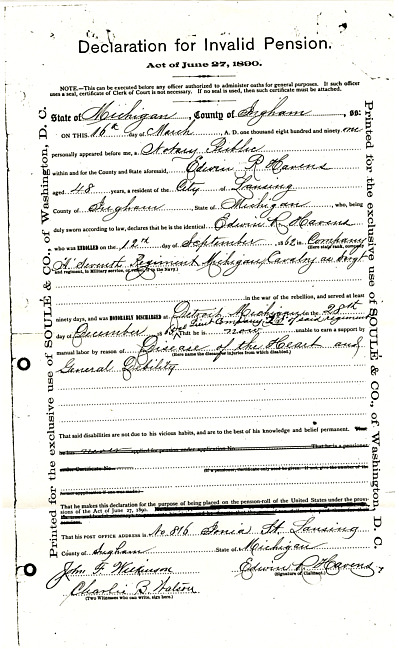 Declaration for Invalid Pension.
Act of June 27, 1890.
NOTE.—This can be executed before any officer authorized to administer oaths for general purposes. If such officer
uses a seal, certificate of Clerk of Court is not necessary. If no seal is used, then such certificate must be attached.
State of Michigan, County of Ingham, ss:
ON THIS 16th day of March, A. D. one thousand eight hundred and ninety one
personally appeared before me, a Notary Public
within and for the County and State aforesaid, Edwin R Havens
aged 48 years, a resident of the City of Lansing
County of Ingham State of Michigan, who, being
duly sworn according to law, declares that he is the identical Edwin R Havens
who was ENROLLED on the 12th day of September 1862 in Company
A Seventh Regiment Michigan Cavalry as Sergt
in the war of the rebellion, and served at least
ninety days, and was HONORABLY DISCHARGED at Detroit Michigan on the 28th
day of December 1865 Lieut Company of said regiment
That he is now unable to earn a support by
manual labor by reason of Disease of the Heart and
(Here name the diseases or injuries from which disabled.)
General Debility
That said disabilities are not due to his vicious habits, and are to the best of his knowledge and belief permanent.
That he makes this declaration for the purpose of being placed on the pension-roll of the United States under the provisions
of the Act of June 27, 1890.
That his POST OFFICE ADDRESS is No 816 Ionia St. Lansing
County of Ingham State of Michigan
John F Wilkinson Edwin R Havens
(Signature of Claimant.)
Charlie B Watson
(Two Witnesses who can write, sign here.)
Printed for the exclusive use of SOULÉ & CO., of Washington, D. C.
Printed for the exclusive use of SOULÉ & CO., of Washington, D. C.